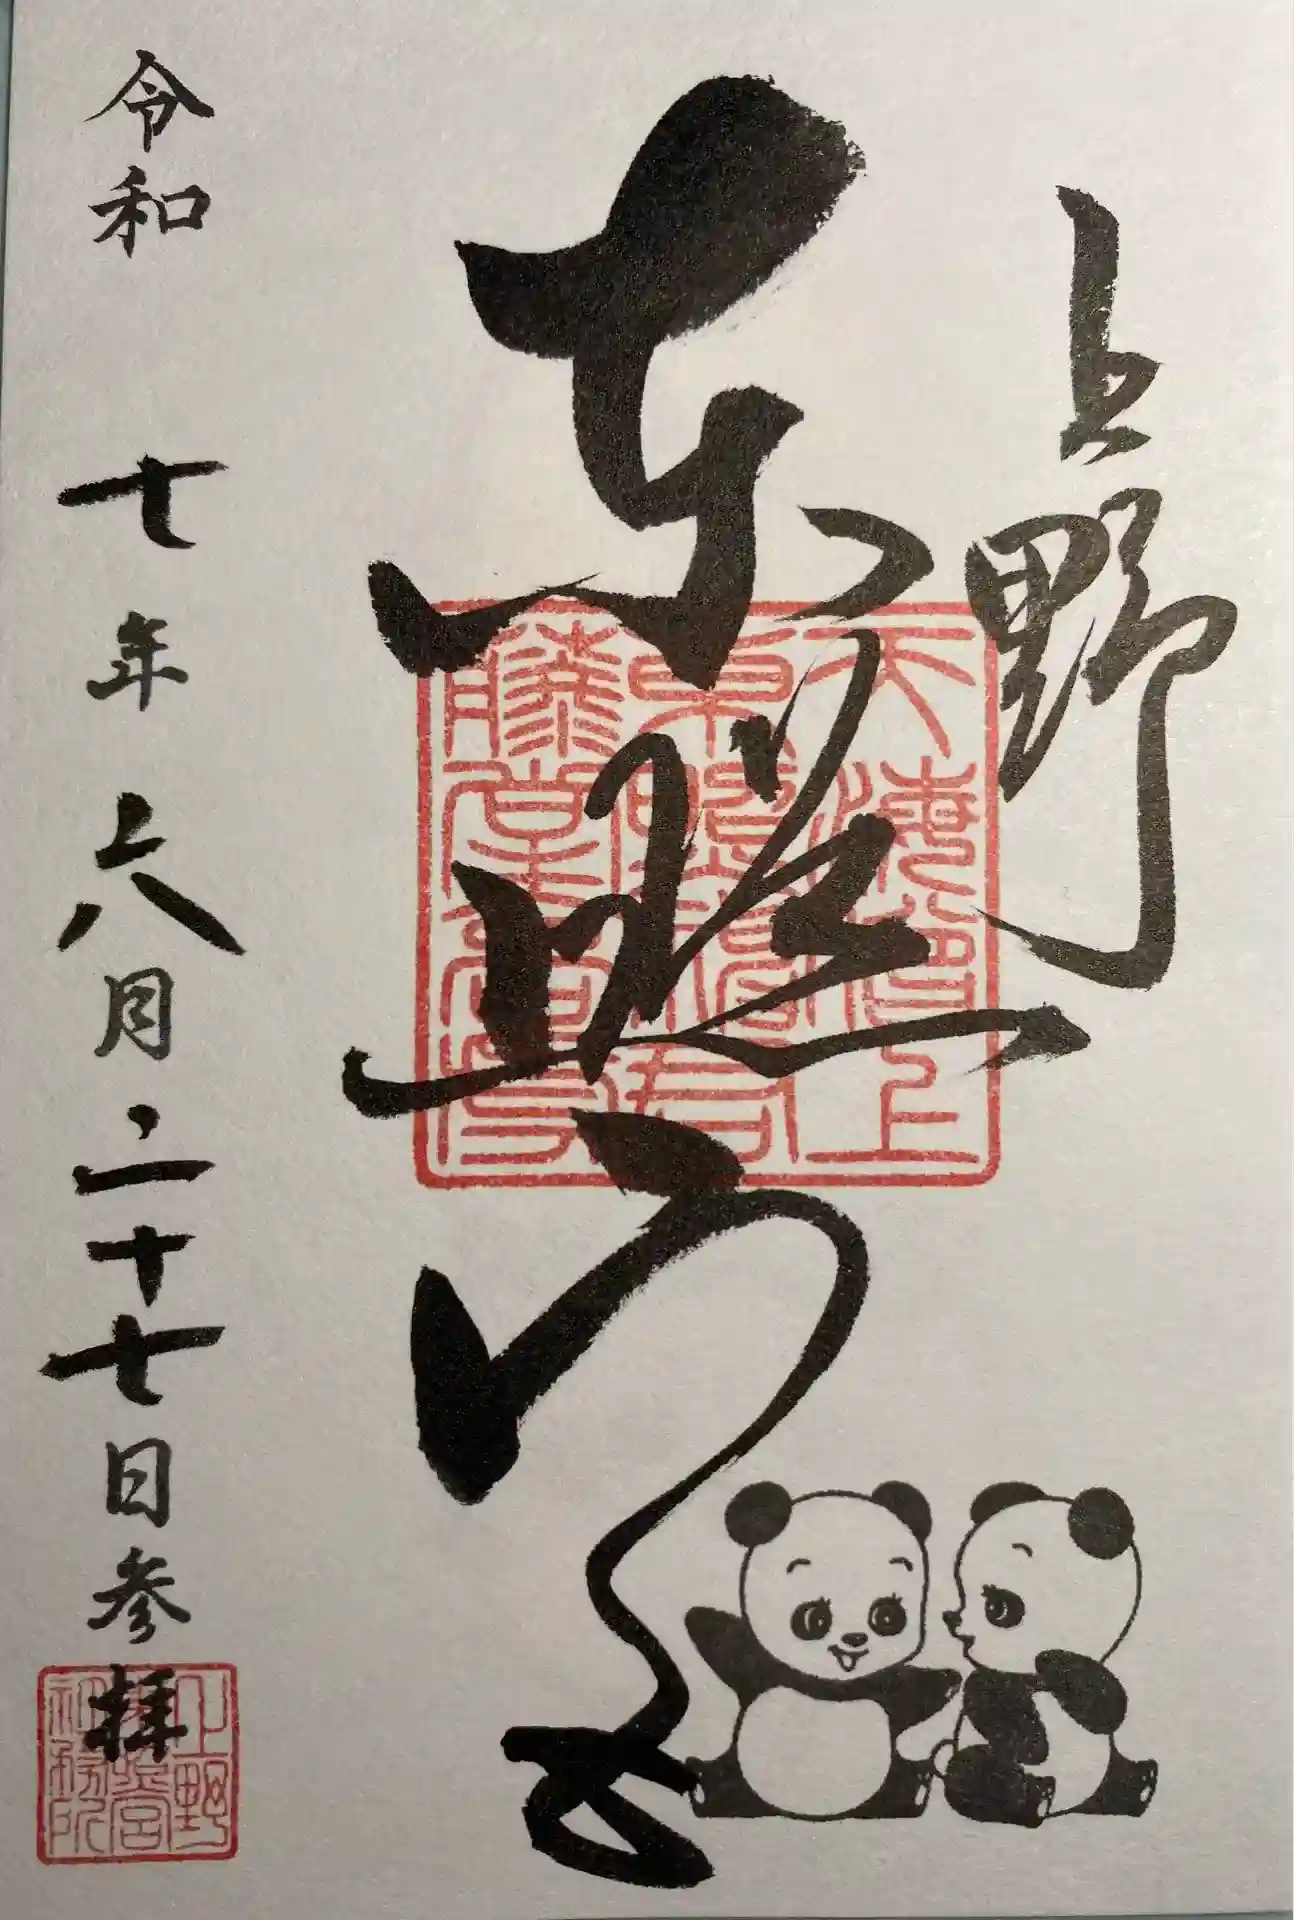 上野
東照宮
天海僧正
東照大権現
藤堂高虎
令和 七年 六月二十七日参拝
上野
東照宮
社務所